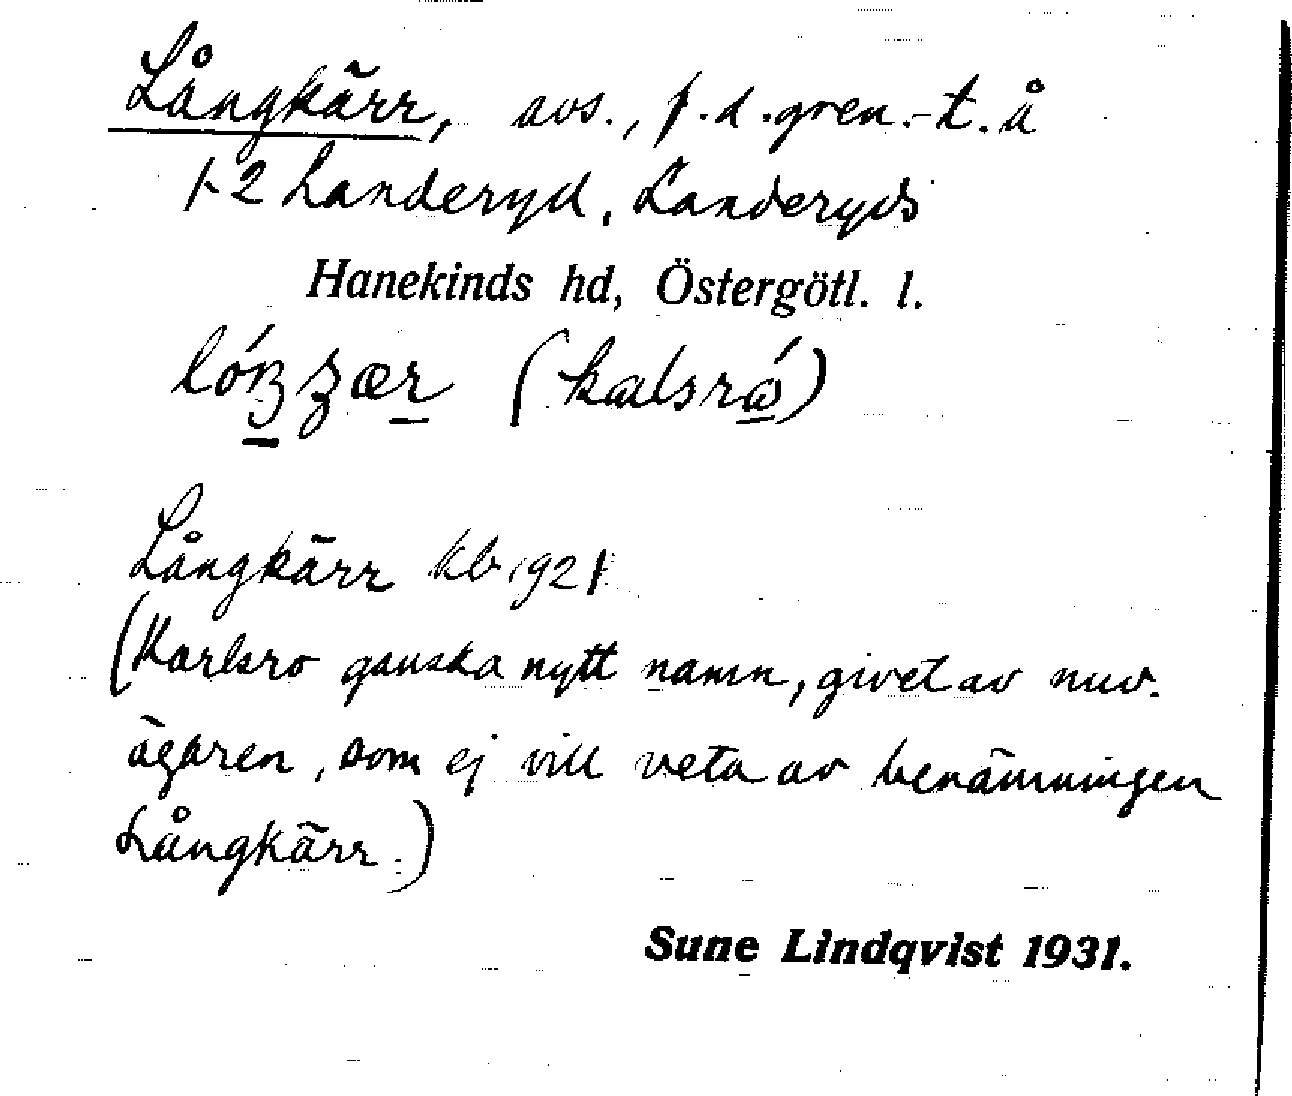 Långkärr, avs., f.d. gren.-t. å
1-2 Landeryd, Landeryds
Hanekinds hd, Östergötl. l.
(kalsrǻ)
Långkärr kb 1921
(Karlsro ganska nytt namn, givet av nuv.
ägaren, som ej vill veta av benämningen
Långkärr.)
Sune Lindqvist 1931.